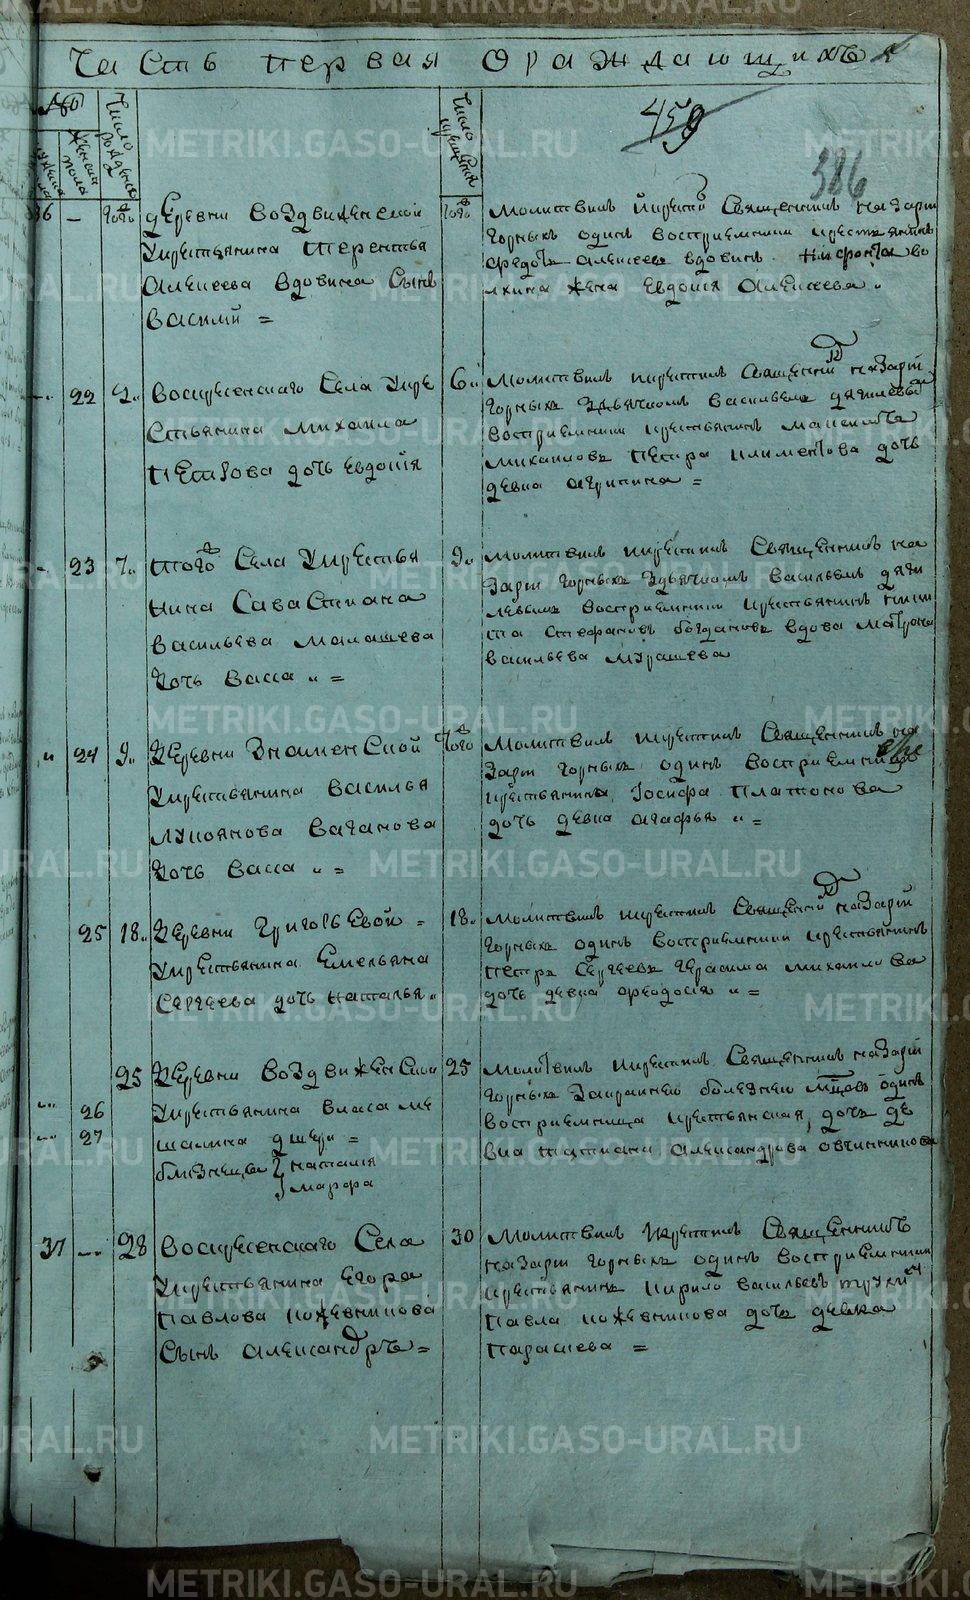 Часть первая о раждающихъ
459
386
№
Число рождения
Число крещения
мужеска пола
женска пола
36 — того деревни Воздвиженской
крестьянина Терентья
Алексеева Вдовина сынъ
Василий =
того молитвилъ и крестилъ священникъ Назарий
Горныхъ одинъ восприемники крестьянинъ
Федотъ Алексеевъ Вдовинъ
жена Евдокия Алексеева
22 2 Воскресенскаго села кре
стьянина Михаила
Петрова дочь Евдокия
6 молитвилъ крестилъ священникъ Назарий
Горныхъ здьячкомъ Васильемъ Дягилевымъ
восприемники крестьянинъ
Михаиловъ Петра Климентова дочь
девка Агрипина =
23 7 того села крестья
нина Савастиана
Васильева Малашева
дочь Васса =
9 молитвилъ крестилъ священникъ На
зарий Горныхъ здьячкомъ Васильемъ Дяги
левымъ восприемники крестьянинъ Ники
та Стефановъ Богдановъ вдова Матрона
Васильева Мурашева
24 9 деревни Знаменской
крестьянина Василья
Лукоянова Ваганова
дочь Васса =
того молитвилъ крестилъ священникъ На
зарий Горныхъ одинъ восприемница
крестьянина Иосифа Платонова
дочь девка Агафья =
25 18 деревни Григорьевой =
крестьянина Емельяна
Сергеева дочь Наталья
18 молитвилъ крестилъ священникъ Назарий
Горныхъ одинъ восприемники крестьянинъ
Петръ Сергеевъ Герасима Михаилова
дочь девка Феодосия =
25 деревни Воздвиженской
26 крестьянина Власа Ме
27 шалкина дщери =
близнецы Наталия
Марфа
25 молитвилъ крестилъ священникъ Назарий
Горныхъ болезнею одинъ
восприемница крестьянская дочь де
вка Татиана Александрова Овчинникова
37 — 28 Воскресенскаго села
крестьянина Егора
Павлова Кожевникова
сынъ Александръ =
30 молитвилъ крестилъ священникъ
Назарий Горныхъ одинъ восприемники
крестьянинъ Кирило Васильевъ
Павла Кожевникова дочь девка
Парасковья =